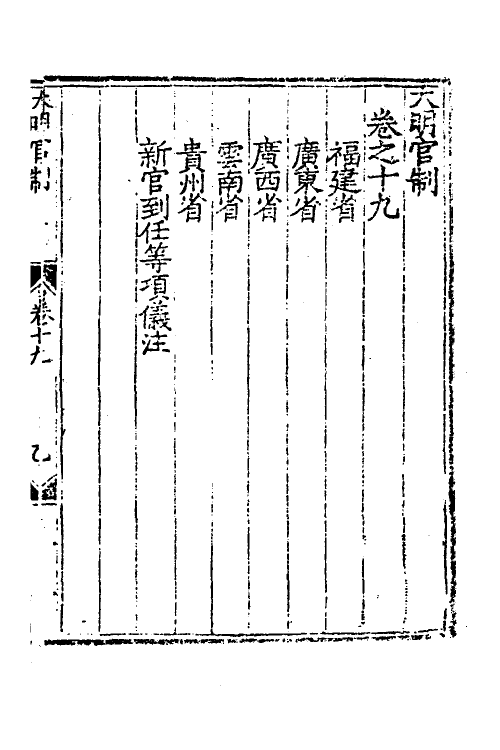 大明官制
卷之十九
福建省
廣東省
廣西省
雲南省
貴州省
新官到任等項儀注
大明官制
卷十九